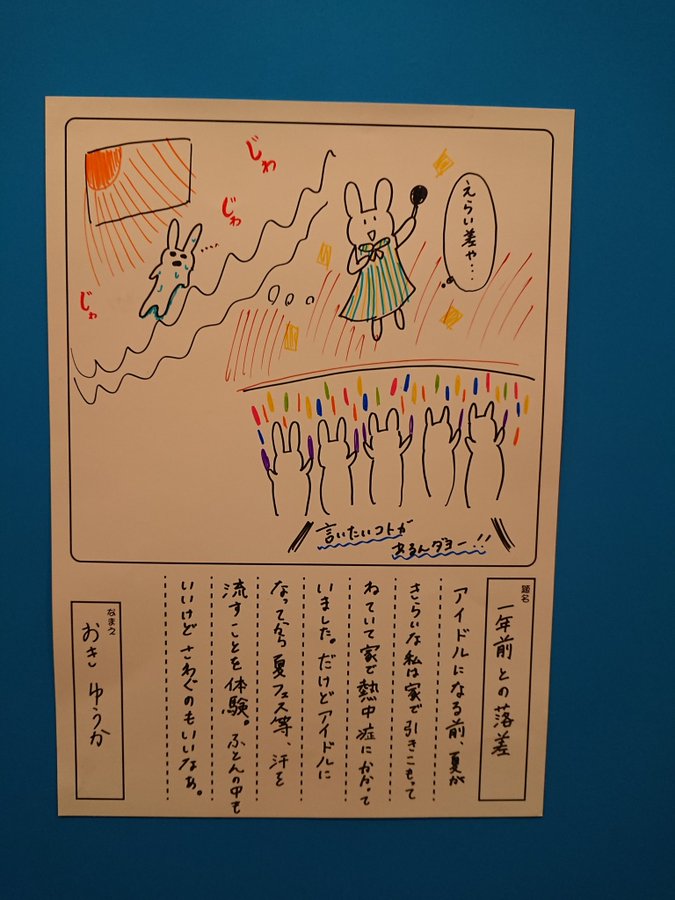 じわ
じわ
じわ
えらい差や・・・
言いたいコトが
あるんダヨー!!
題名
一年前との落差
アイドルになる前、夏が
きらいな私は家で引きこもって
ねていて家で熱中症にかかって
いました。だけどアイドルに
なってから夏フェス等、汗を
流すことを体験。ふとんの中も
いいけどさわぐのもいいなぁ。
なまえ
おき ゆうか